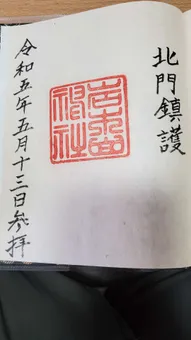 北門鎮護
岩木山
神社
令和五年五月十三日參拝